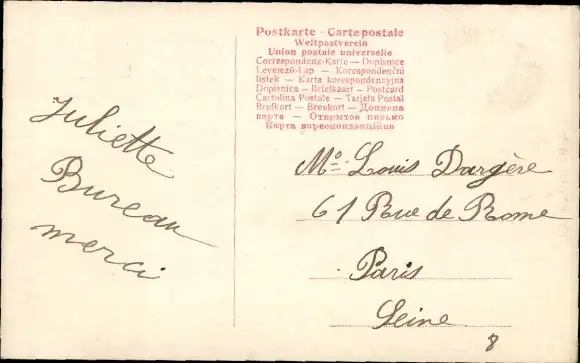 Postkarte - Carte postale
Weltpostverein
Union postale universelle
Correspondenz-Karte — Dopisnice
Levelező-Lap — Korespondenční
lístek — Karta korespondencyjna
Dopisnica — Briefkaart — Postcard
Cartolina Postale — Tarjeta Postal
Brefkort — Brevkort — Дописна
карта — Открытое письмо
Карта кореспонденційна
Juliette
Bureau
merci
Mo Louis Dargère
61 Rue de Rome
Paris
Seine
8